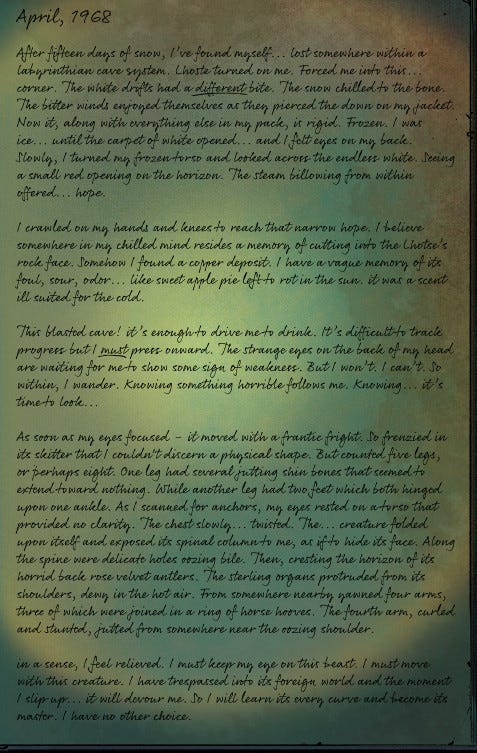 April, 1968
After fifteen days of snow, I've found myself... lost somewhere within a
labyrinthian cave system. Lhoste turned on me. Forced me into this...
corner. The white drifts had a different bite. The snow chilled to the bone.
The bitter winds enjoyed themselves as they pierced the down on my jacket.
Now it, along with everything else in my pack, is rigid. Frozen. I was
ice... until the carpet of white opened... and I felt eyes on my back.
Slowly, I turned my frozen torso and looked across the endless white. Seeing
a small red opening on the horizon. The steam billowing from within
offered... hope.
I crawled on my hands and knees to reach that narrow hope. I believe
somewhere in my chilled mind resides a memory of cutting into the Lhotse's
rock face. Somehow I found a copper deposit. I have a vague memory of its
foul, sour, odor... like sweet apple pie left to rot in the sun. it was a scent
ill suited for the cold.
This blasted cave! it's enough to drive me to drink. It's difficult to track
progress but I must press onward. The strange eyes on the back of my head
are waiting for me to show some sign of weakness. But I won't. I can't. So
within, I wander. Knowing something horrible follows me. Knowing... it's
time to look...
As soon as my eyes focused - it moved with a frantic fright. So frenzied in
its skitter that I couldn't discern a physical shape. But counted five legs,
or perhaps eight. One leg had several jutting shin bones that seemed to
extend toward nothing. While another leg had two feet which both hinged
upon one ankle. As I scanned for anchors, my eyes rested on a torso that
provided no clarity. The chest slowly... twisted. The... creature folded
upon itself and exposed its spinal column to me, as if to hide its face. Along
the spine were delicate holes oozing bile. Then, cresting the horizon of its
horrid back rose velvet antlers. The sterling organs protruded from its
shoulders, dewy in the hot air. From somewhere nearby yawned four arms,
three of which were joined in a ring of horse hooves. The fourth arm, curled
and stunted, jutted from somewhere near the oozing shoulder.
in a sense, I feel relieved. I must keep my eye on this beast. I must move
with this creature. I have trespassed into its foreign world and the moment
I slip up... it will devour me. So I will learn its every curve and become its
master. I have no other choice.